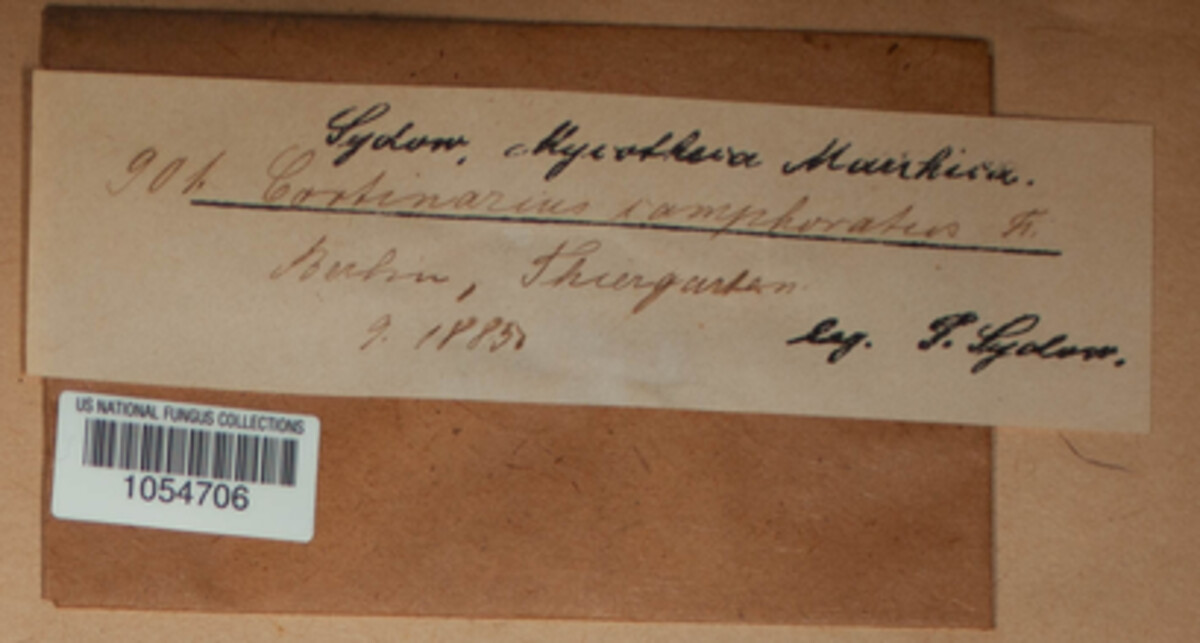 Sydow, Mycotheca Marchica.
901. Cortinarius camphoratus Fr.
Berlin, Thiergarten
9. 1885.
leg. P. Sydow.
US NATIONAL FUNGUS COLLECTIONS
1054706